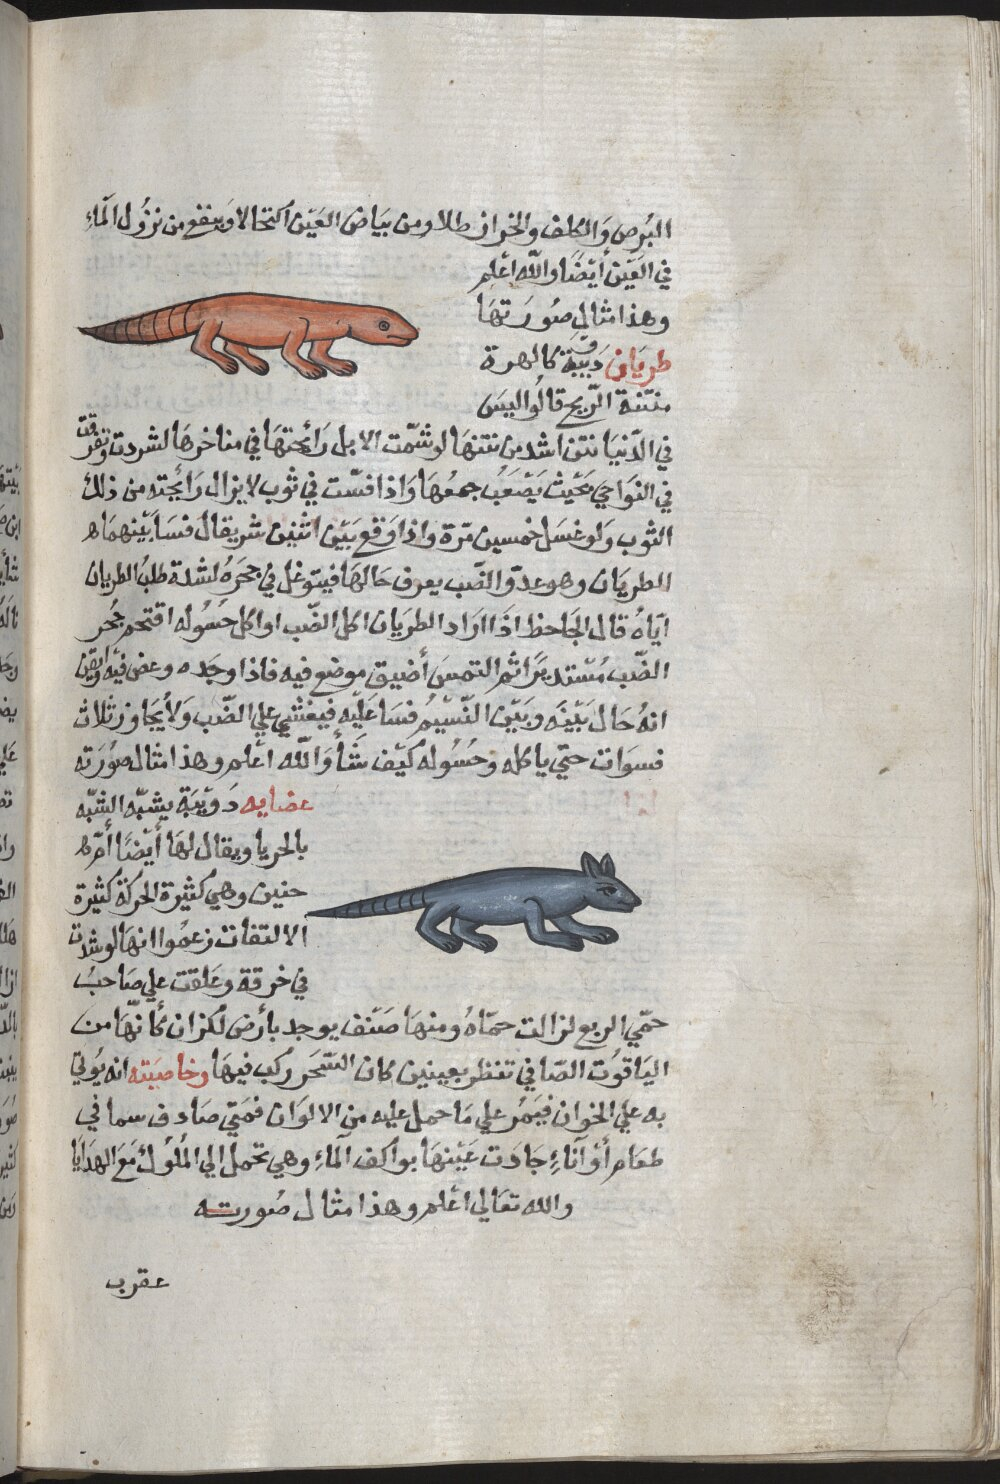 البُرص وَالكلف والخزاز طلا ومن بيَاض العَيْن اكتحالا وَينفع من نزوُل المآءِ
في العَيْن أيْضًا والله اعْلم
وهذا مثال صوُرَتهَا
طريَان دَويبَّة كالهرة
منتنة الرّيح قالوُا ليسَ
في الدّنيَا نتن اشد من نتنهَا لو شمّت الابل رَائحتهَا في مناخرهَا لشردت وتفرقت
في النوَاحيَ بحَيْث يَصْعَبُ جمعُهَا وَاذا فسَت في ثوب لا يزال رَائحته من ذلك
الثوب وَلو غسَل خمسين مرّة واذا وَقع بَيْن اثنين شر يقال فسَا بَيْنهما
الطريَان وهو عدوّ الضّب يعرف حَالهَا فيتوغل في جحرَهُ لشدة طلبُ الطريان
ايّاهُ قال الجَاحظ اذَا ارَاد الطريَان اكل الضّب او اكل حسُوله اقتحم جُحر
الضّب مُسْتدبرًا ثم التمسَ أضيق موضع فيه فاذا وجَده وعض فيه وَايقن
انهُ حَال بَيْنَه وبَيْن النّسْيم فسَا عَليْه فيغشي علي الضّب وَلا يُجَاوز ثلاث
فسوَات حتّي ياكله وحسُوُله كيْف شَأ وَالله اعْلم وهذا مثال صوُرَته
عضايه دَوَيْبَة يشبّه الشبّه
بالحربا ويقال لهَا أيضًا أمّ
حنين وهي كثيْرة الحركة كثيرة
الالتفات زعمُوا انهَا لو شدت
في خرقة وعَلقت علي صَاحبُ
حمّي الربع لزالت حمّاهُ ومنهَا صَنف يوجد بأرض لكزان كأنّهَا من
اليَاقوُت الصّافي تنظر بعينين كان السّحَر ركب فيهَا وخاصيَته انه يوُتي
به علي الخوان فيَمرُ علي مَا حمل عليه من الالوَان فمَتي صَادف سما في
طعَام أوْ آنَاءٍ جَادَت عَيْنهَا بواكف المآءِ وهي تحمل الي المُلوُك مَعَ الهدَايَا
والله تعَالي اعْلم وهذا مثال صوُرته
عقرب